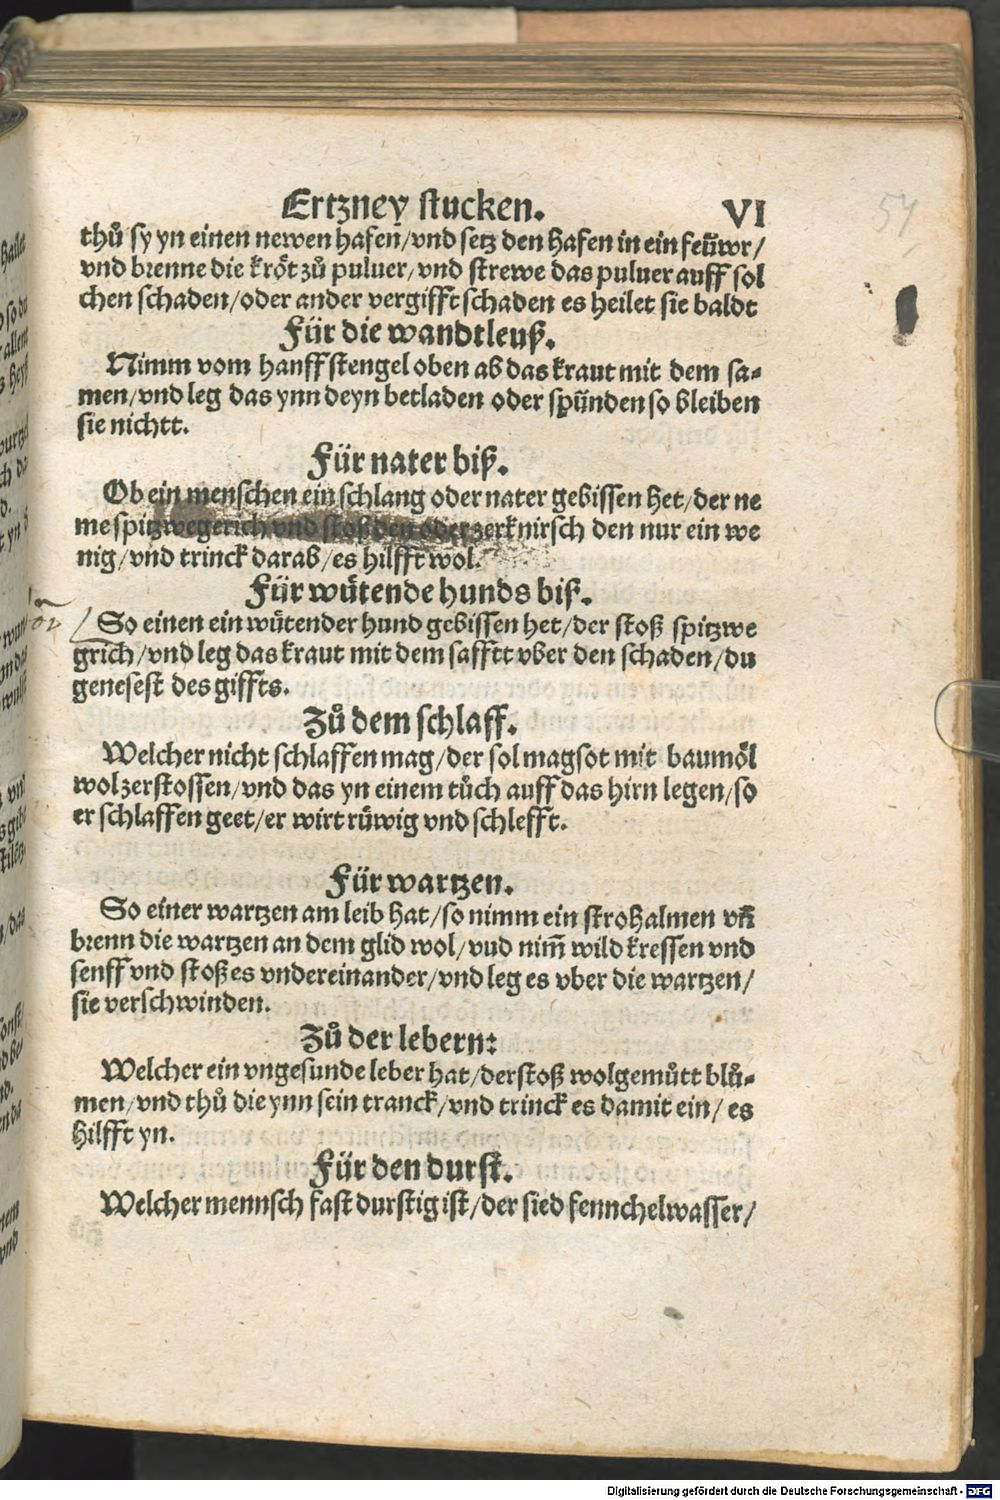 Ertzney stucken. VI
54
thů sy yn einen newen hafen/vnd setz den hafen in ein feüwr/
vnd brenne die kröt zů puluer/vnd strewe das puluer auff sol
chen schaden/oder ander vergifft schaden es heilet sie baldt
Für die wandtleuß.
Nimm vom hanffstengel oben ab das kraut mit dem sa-
men/vnd leg das ynn deyn betladen oder spünden so bleiben
sie nichtt.
Für nater biß.
Ob ein menschen ein schlang oder nater gebissen het/der ne
me spitzwegerich vnd stoß den oder zerknirsch den nur ein we
nig/vnd trinck darab/es hilfft wol.
Für wütende hunds biß.
So einen ein wütender hund gebissen het/der stoß spitzwe
grich/vnd leg das kraut mit dem safftt vber den schaden/du
genesest des giffts.
Zů dem schlaff.
Welcher nicht schlaffen mag/der sol magsot mit baumöl
wol zerstossen/vnd das yn einem tůch auff das hirn legen/so
er schlaffen geet/er wirt rüwig vnd schlefft.
Für wartzen.
So einer wartzen am leib hat/so nimm ein strohalmen vñ
brenn die wartzen an dem glid wol/vud nim̃ wild kressen vnd
senff vnd stoß es vndereinander/vnd leg es vber die wartzen/
sie verschwinden.
Zů der lebern:
Welcher ein vngesunde leber hat/der stoß wolgemütt blů-
men/vnd thů die ynn sein tranck/vnd trinck es damit ein/es
hilfft yn.
Für den durst.
Welcher mennsch fast durstig ist/der sied fennchelwasser/
Digitalisierung gefördert durch die Deutsche Forschungsgemeinschaft - DFG